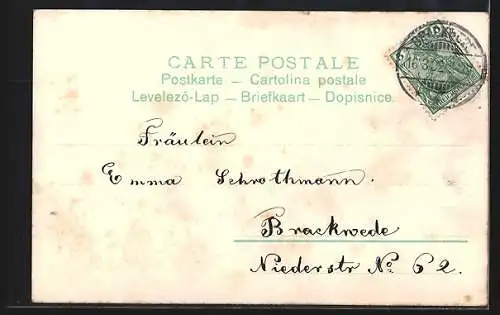 CARTE POSTALE
Postkarte — Cartolina postale
Levelező-Lap — Briefkaart — Dopisnice.
Fräulein
Emma Schrothmann.
Brackwede
Niederstr No 62.